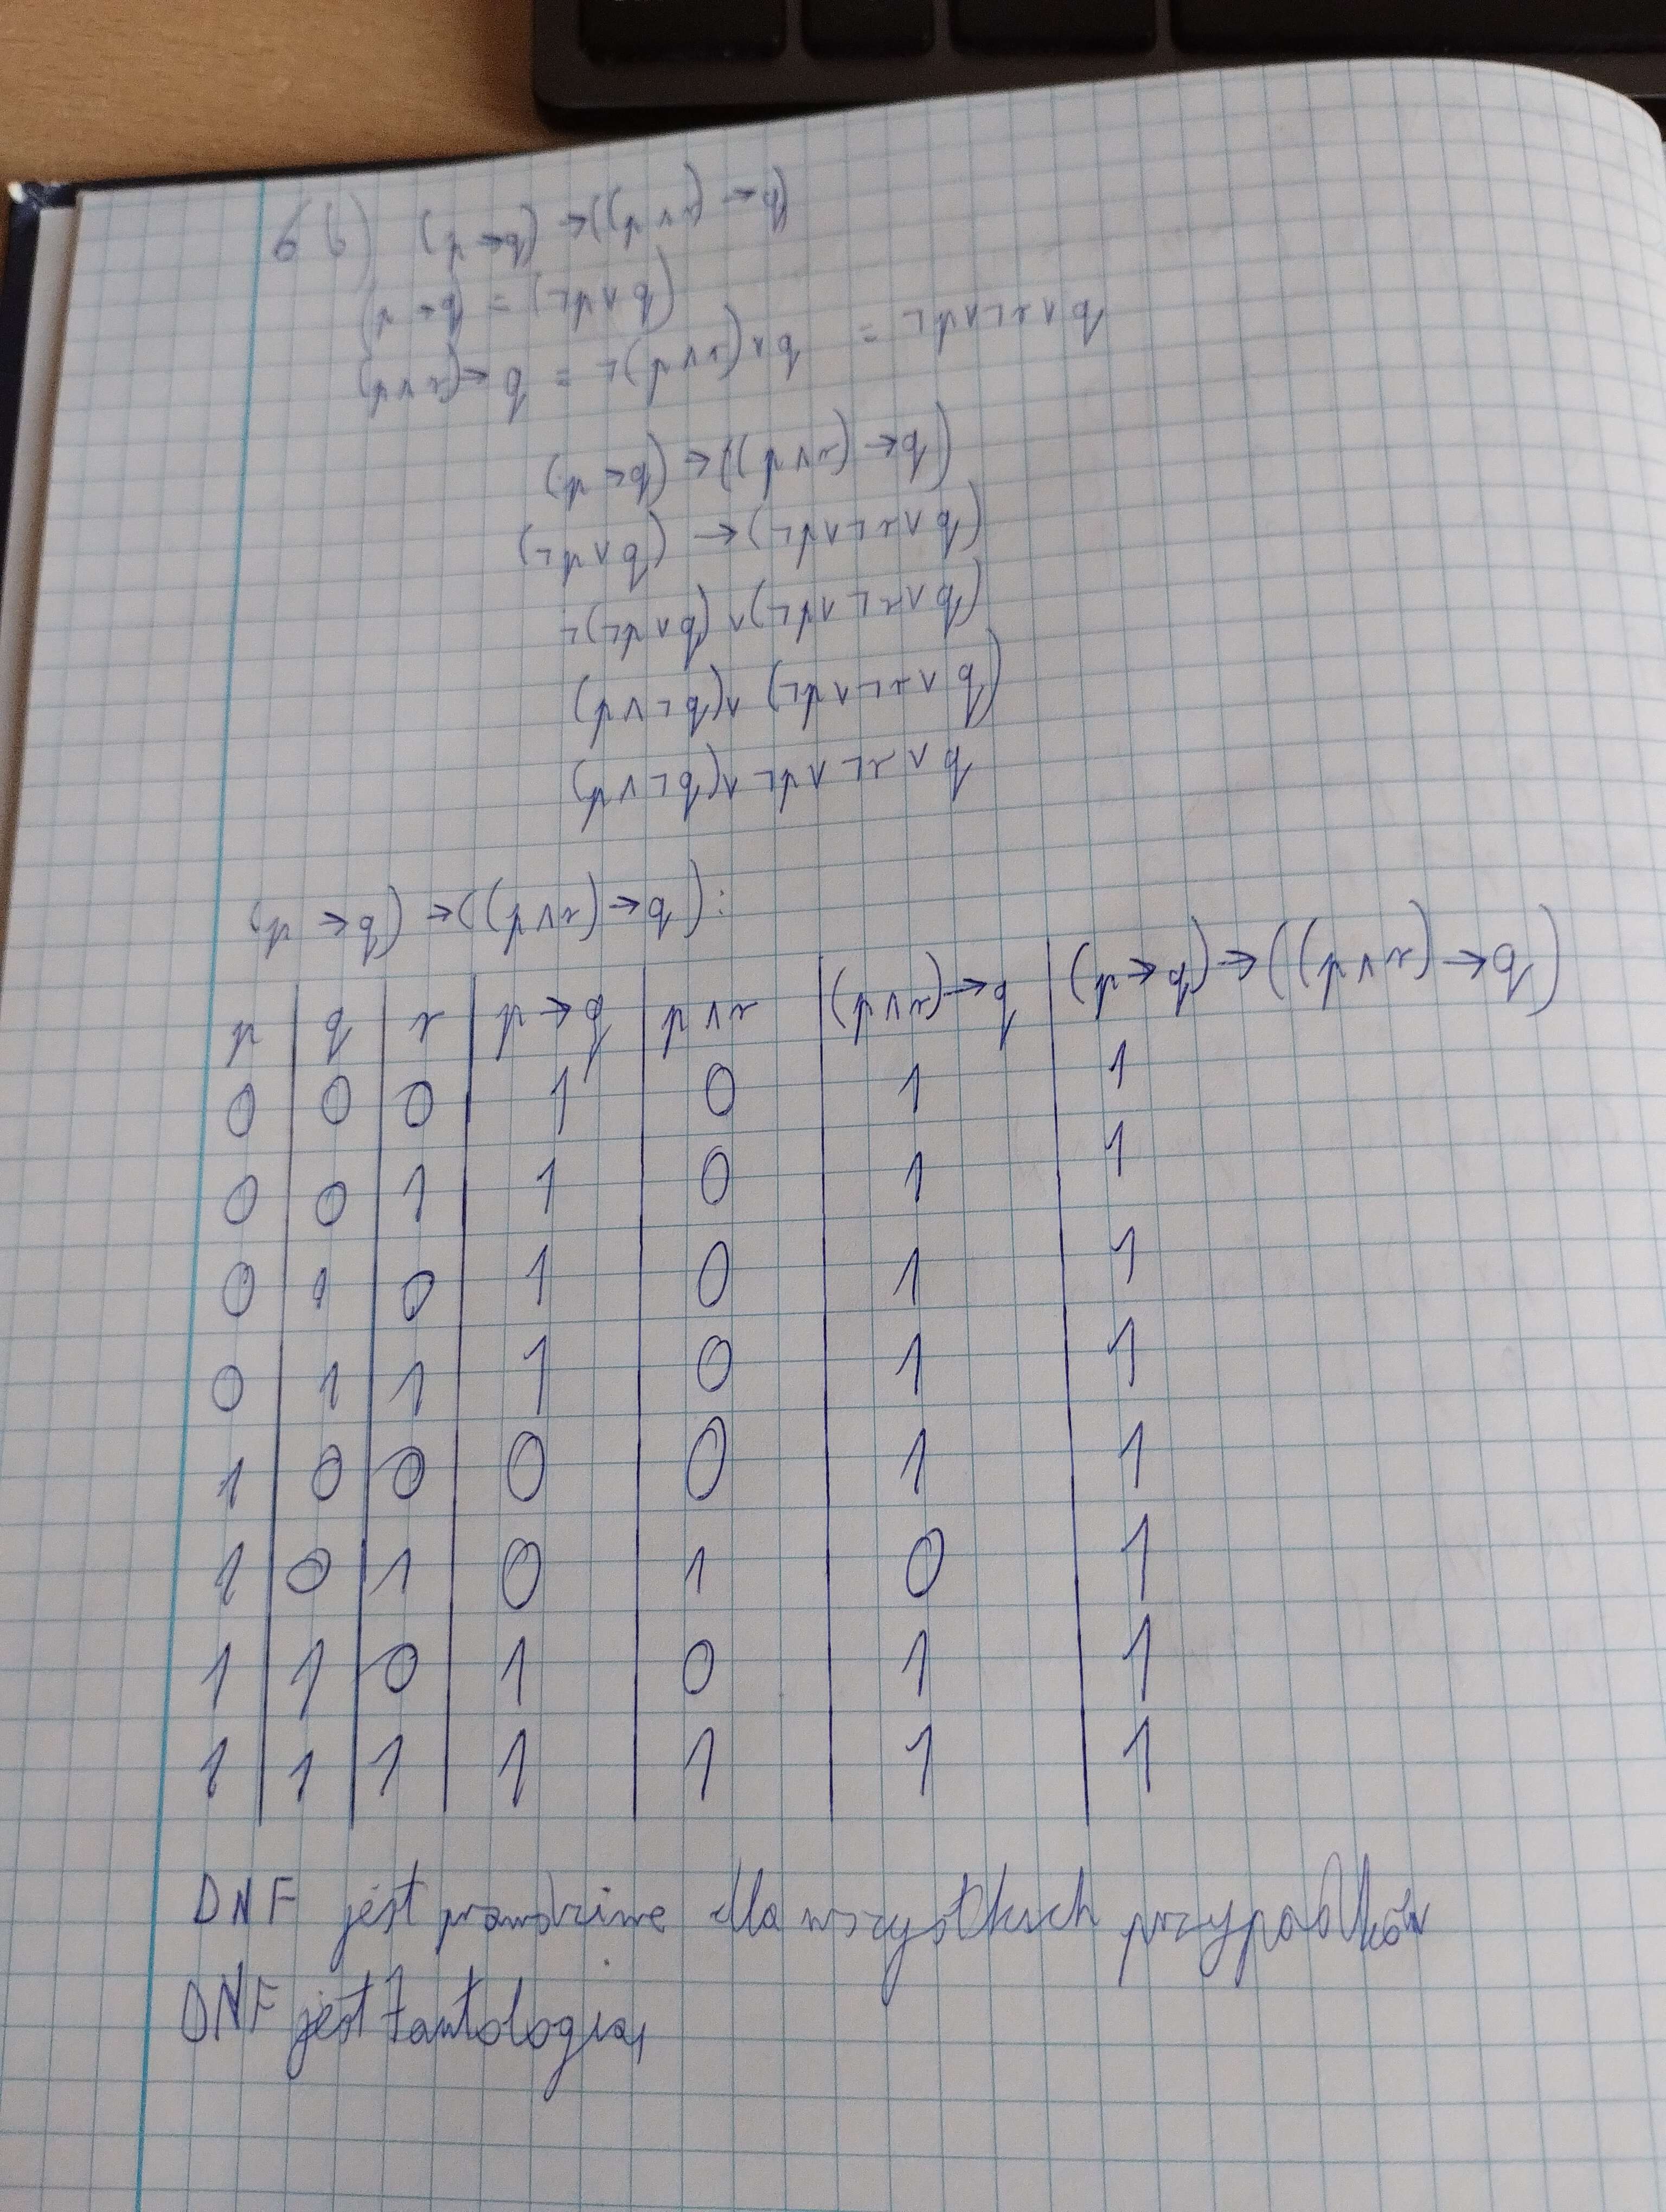 (p → q) → ((p ∧ r) → q)
(p → q) = (¬p ∨ q)
(p ∧ r) → q = ¬(p ∧ r) ∨ q = ¬p ∨ ¬r ∨ q
(p → q) → ((p ∧ r) → q)
(¬p ∨ q) → (¬p ∨ ¬r ∨ q)
¬(¬p ∨ q) ∨ (¬p ∨ ¬r ∨ q)
(p ∧ ¬q) ∨ (¬p ∨ ¬r ∨ q)
(p ∧ ¬q) ∨ ¬p ∨ ¬r ∨ q
(p → q) → ((p ∧ r) → q):
p q r p → q p ∧ r (p ∧ r) → q (p → q) → ((p ∧ r) → q)
0 0 0 1 0 1 1
0 0 1 1 0 1 1
0 1 0 1 0 1 1
0 1 1 1 0 1 1
1 0 0 0 0 1 1
1 0 1 0 1 0 1
1 1 0 1 0 1 1
1 1 1 1 1 1 1
DNF jest prawdziwe dla wszystkich przypadków
DNF jest tautologią